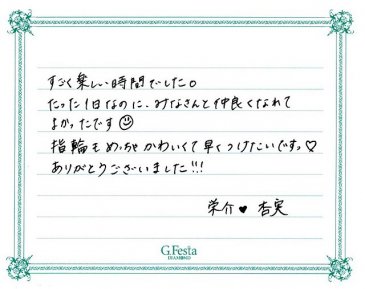 すごく楽しい時間でした。
たった1日なのに、みなさんと仲良くなれて
よかったです☺
指輪もめっちゃかわいくて早くつけたいですっ♡
ありがとうございました!!!
栄介♥杏実
G.Festa
DIAMOND